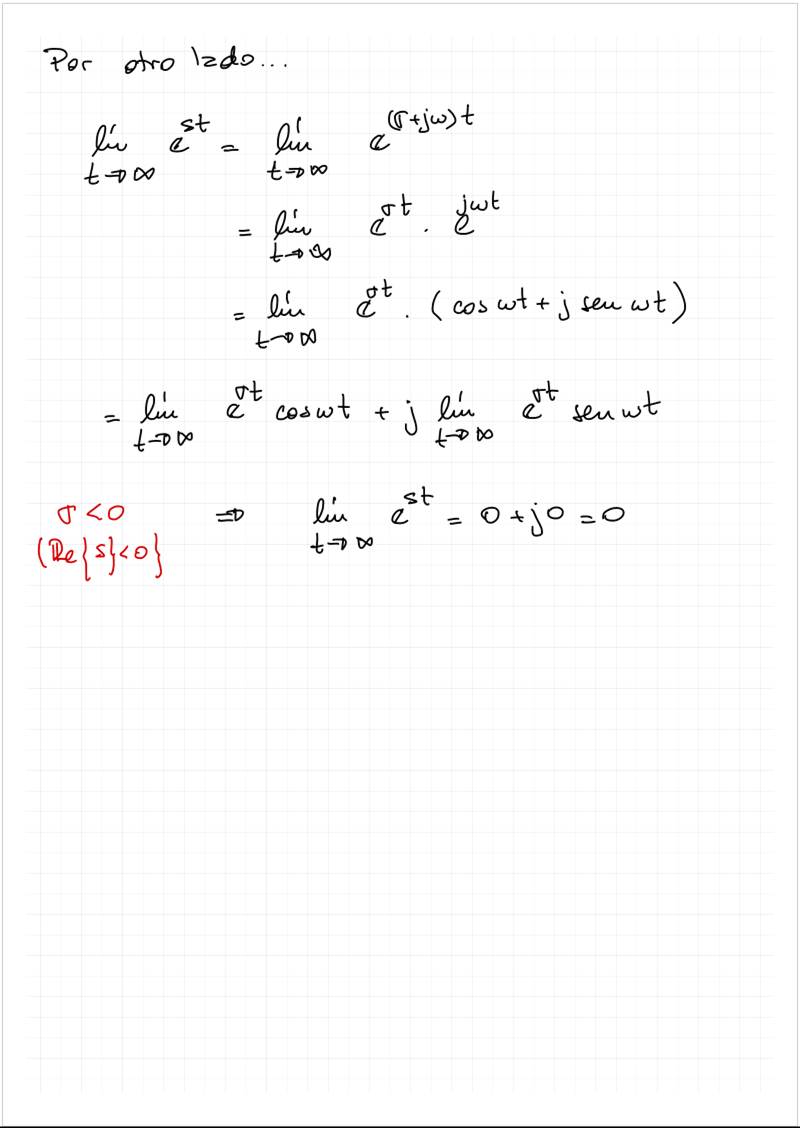 Por otro lado...
lím_{t→∞} e^{st} = lím_{t→∞} e^{(σ+jω)t}
= lím_{t→∞} e^{σt} . e^{jωt}
= lím_{t→∞} e^{σt} . (cos ωt + j sen ωt)
= lím_{t→∞} e^{σt} cos ωt + j lím_{t→∞} e^{σt} sen ωt
σ < 0 ⇒ lím_{t→∞} e^{st} = 0 + j0 = 0
(Re{s}<0}